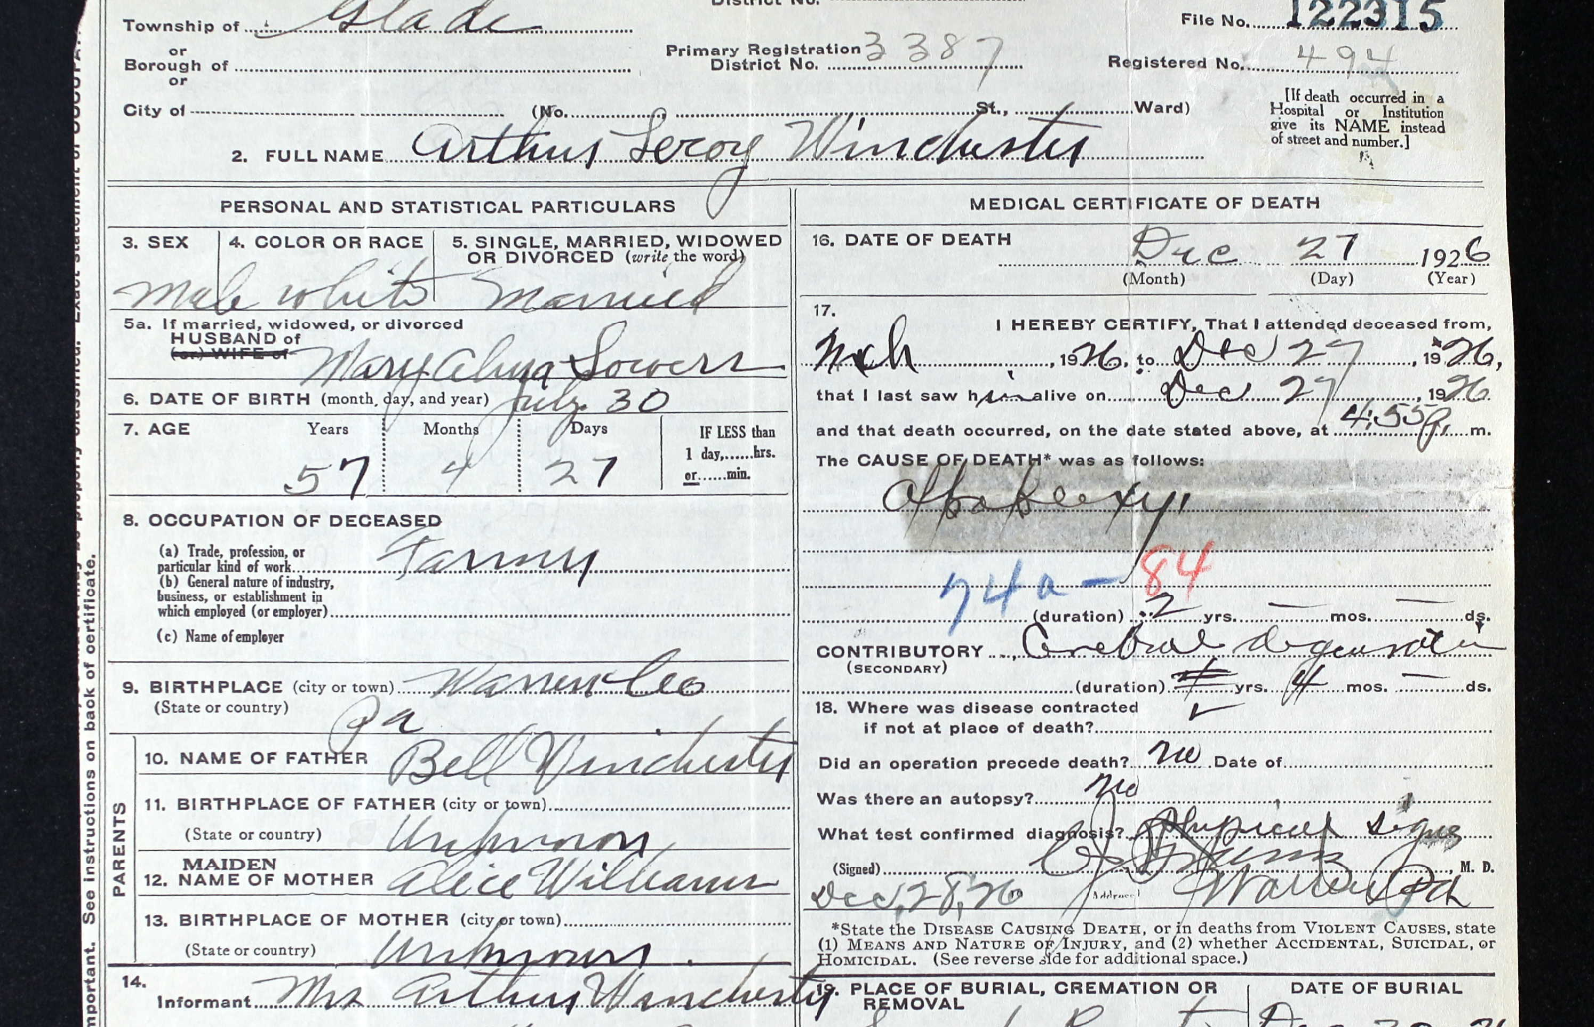 District No.
Township of Glade
File No. 122315
or
Primary Registration 3387
District No.
Registered No. 494
Borough of
or
City of (No. , St., Ward)
[If death occurred in a
Hospital or Institution
give its NAME instead
of street and number.]
2. FULL NAME Arthur Leroy Winchester
PERSONAL AND STATISTICAL PARTICULARS
3. SEX 4. COLOR OR RACE 5. SINGLE, MARRIED, WIDOWED
OR DIVORCED (write the word)
Male White Married
5a. If married, widowed, or divorced
HUSBAND of
(or) WIFE of
Mary Sowers
6. DATE OF BIRTH (month, day, and year) July 30
7. AGE Years Months Days IF LESS than
1 day,......hrs.
or......min.
57 4 27
8. OCCUPATION OF DECEASED
(a) Trade, profession, or
particular kind of work Farmer
(b) General nature of industry,
business, or establishment in
which employed (or employer)
(c) Name of employer
9. BIRTHPLACE (city or town) Warren Co
(State or country) Pa
PARENTS
10. NAME OF FATHER Bell Winchester
11. BIRTHPLACE OF FATHER (city or town)
(State or country) Unknown
12. MAIDEN NAME OF MOTHER Alice Williams
13. BIRTHPLACE OF MOTHER (city or town)
(State or country) Unknown.
14.
Informant Mrs Arthur Winchester
MEDICAL CERTIFICATE OF DEATH
16. DATE OF DEATH Dec 27 1926
(Month) (Day) (Year)
17.
I HEREBY CERTIFY, That I attended deceased from,
Mch, 1926, to Dec 27, 1926,
that I last saw him alive on Dec 27, 1926
and that death occurred, on the date stated above, at 4:55 p. m.
The CAUSE OF DEATH* was as follows:
Apoplexy
74a - 84
(duration) 2 yrs. — mos. — ds.
CONTRIBUTORY Cerebral degeneration
(SECONDARY)
(duration) yrs. 4 mos. — ds.
18. Where was disease contracted
if not at place of death?
Did an operation precede death? no Date of
Was there an autopsy? no
What test confirmed diagnosis? Physical signs
(Signed) M. D.
Dec, 28, 26 Address Warren Pa
*State the DISEASE CAUSING DEATH, or in deaths from VIOLENT CAUSES, state
(1) MEANS AND NATURE OF INJURY, and (2) whether ACCIDENTAL, SUICIDAL, or
HOMICIDAL. (See reverse side for additional space.)
19. PLACE OF BURIAL, CREMATION OR
REMOVAL
DATE OF BURIAL
mportant. See instructions on back of certificate.